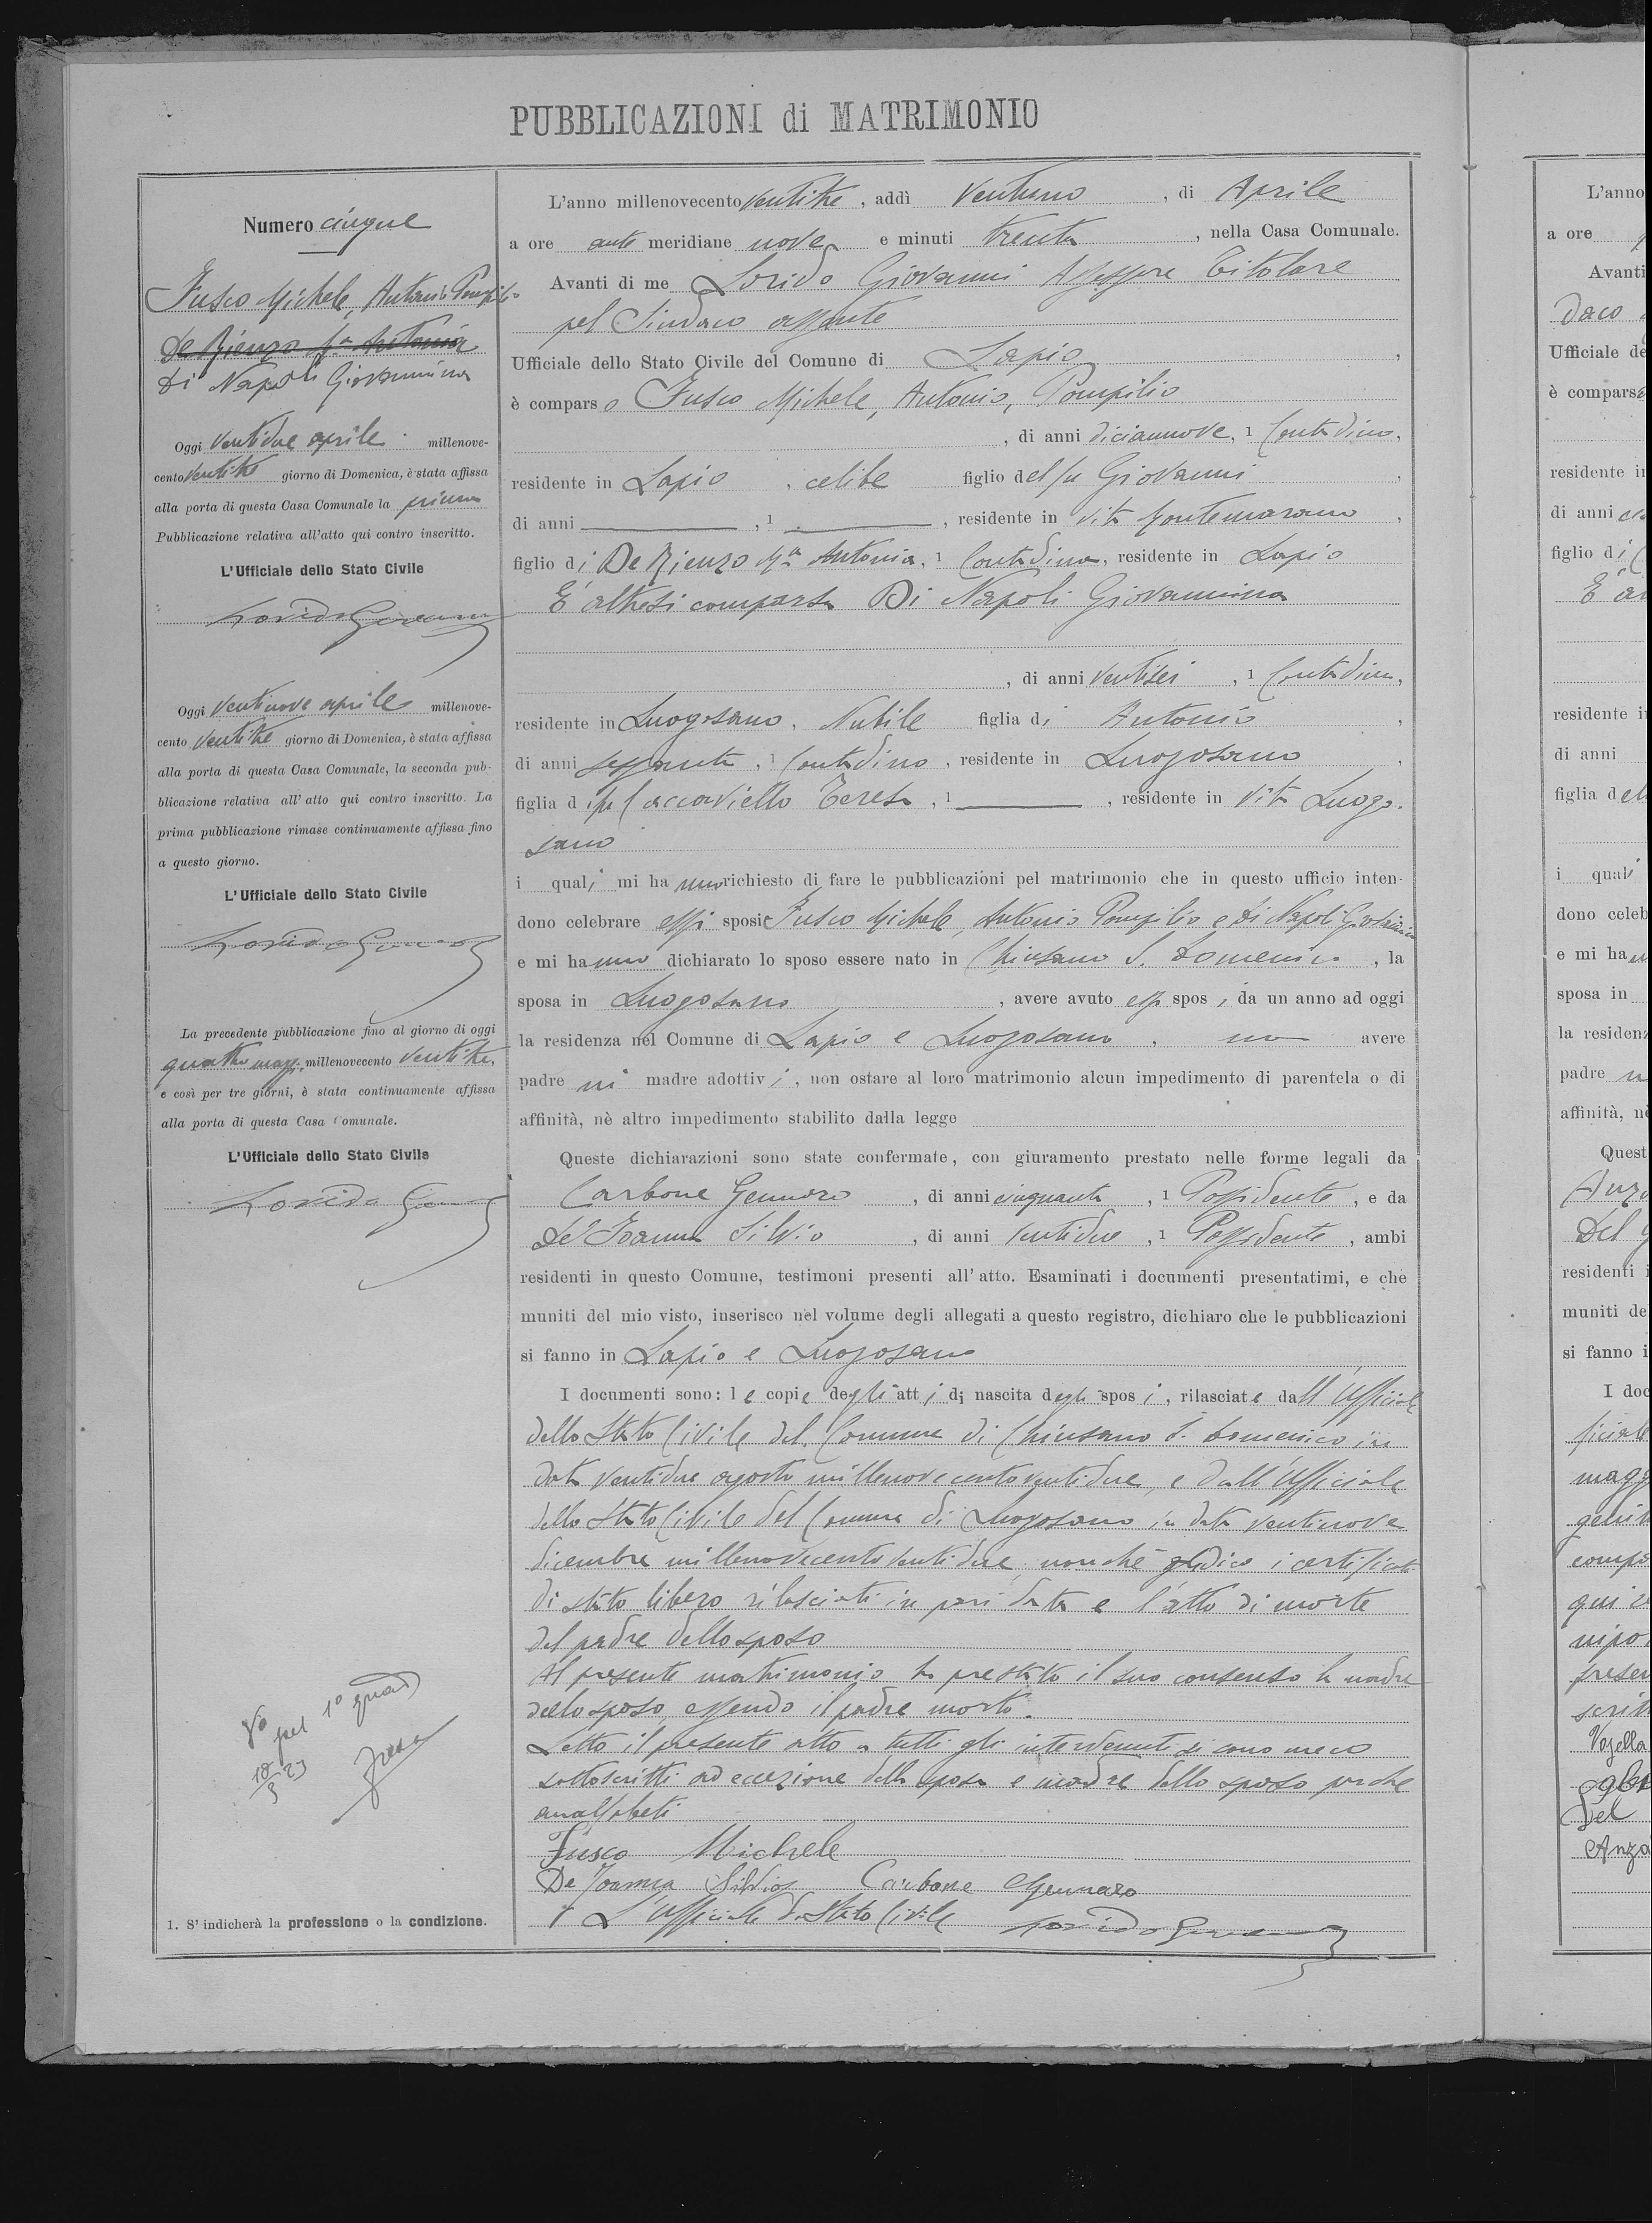 PUBBLICAZIONI di MATRIMONIO
Numero cinque
Fusco Michele, Antonio Pompilio
De Rienzo Ma Antonia
Di Napoli Giovannina
Oggi ventidue aprile millenove-
cento ventitre giorno di Domenica, è stata affissa
alla porta di questa Casa Comunale la prima
Pubblicazione relativa all'atto qui contro inscritto.
L'Ufficiale dello Stato Civile
Lorido Giovanni
Oggi ventinove aprile millenove-
cento ventitre giorno di Domenica, è stata affissa
alla porta di questa Casa Comunale, la seconda pub-
blicazione relativa all'atto qui contro inscritto. La
prima pubblicazione rimase continuamente affissa fino
a questo giorno.
L'Ufficiale dello Stato Civile
Lorido Giovanni
La precedente pubblicazione fino al giorno di oggi
quattro maggio millenovecento ventitre,
e così per tre giorni, è stata continuamente affissa
alla porta di questa Casa Comunale.
L'Ufficiale dello Stato Civile
Lorido Giovanni
Vo pel 1o quad
18/5 23
1. S'indicherà la professione o la condizione.
L'anno millenovecento ventitre, addì ventuno, di Aprile
a ore ante meridiane nove e minuti trenta, nella Casa Comunale.
Avanti di me Lorido Giovanni Assessore Titolare
pel Sindaco assente
Ufficiale dello Stato Civile del Comune di Lapio,
è comparso Fusco Michele, Antonio, Pompilio
, di anni diciannove, 1 Contadino,
residente in Lapio, celibe figlio del fu Giovanni,
di anni , 1 , residente in vita Montemarano,
figlio di De Rienzo Ma Antonia, 1 Contadina, residente in Lapio
E' altresi comparsa Di Napoli Giovannina
, di anni ventisei, 1 Contadina,
residente in Luogosano, Nubile figlia di Antonio,
di anni sessanta, 1 Contadino, residente in Luogosano,
figlia di fu Caccaviello Teresa, 1 , residente in vita Luogo-
sano
i quali mi hanno richiesto di fare le pubblicazioni pel matrimonio che in questo ufficio inten-
dono celebrare essi sposi Fusco Michele, Antonio Pompilio e Di Napoli Giovannina
e mi hanno dichiarato lo sposo essere nato in Chiusano S. Domenico, la
sposa in Luogosano, avere avuto essi sposi, da un anno ad oggi
la residenza nel Comune di Lapio e Luogosano, no avere
padre ni madre adottivi, non ostare al loro matrimonio alcun impedimento di parentela o di
affinità, nè altro impedimento stabilito dalla legge
Queste dichiarazioni sono state confermate, con giuramento prestato nelle forme legali da
Carbone Gennaro, di anni cinquanta, 1 Possidente, e da
De Joanna Silvio, di anni ventidue, 1 Possidente, ambi
residenti in questo Comune, testimoni presenti all'atto. Esaminati i documenti presentatimi, e che
muniti del mio visto, inserisco nel volume degli allegati a questo registro, dichiaro che le pubblicazioni
si fanno in Lapio e Luogosano
I documenti sono: le copie degli atti di nascita degli sposi, rilasciate dall'Ufficiale
dello Stato Civile del Comune di Chiusano S. Domenico in
data ventidue agosto millenovecentoventidue, e dall'Ufficiale
dello Stato Civile del Comune di Luogosano in data ventinove
dicembre millenovecentoventidue nonchè dico i certificati
di stato libero rilasciati in pari data e l'atto di morte
del padre dello sposo
Al presente matrimonio ha prestato il suo consenso la madre
dello sposo, essendo il padre morto.
Letto il presente atto a tutti gli intervenuti si sono meco
sottoscritti ad eccezione della sposa e madre dello sposo perchè
analfabeti
Fusco Michele
De Joanna Silvio Carbone Gennaro
L'Ufficiale di Stato Civile Lorido Giovanni
L'anno
a ore
Avanti
daco
Ufficiale de
è compars
residente in
di anni
figlio di
E' al
residente in
di anni
figlia del
i quali
dono celeb
e mi ha
sposa in
la residenz
padre
affinità, nè
Quest
Anza
Del
residenti i
muniti de
si fanno i
I doc
ficiale
magg
compa
qui
presen
Del
Anza